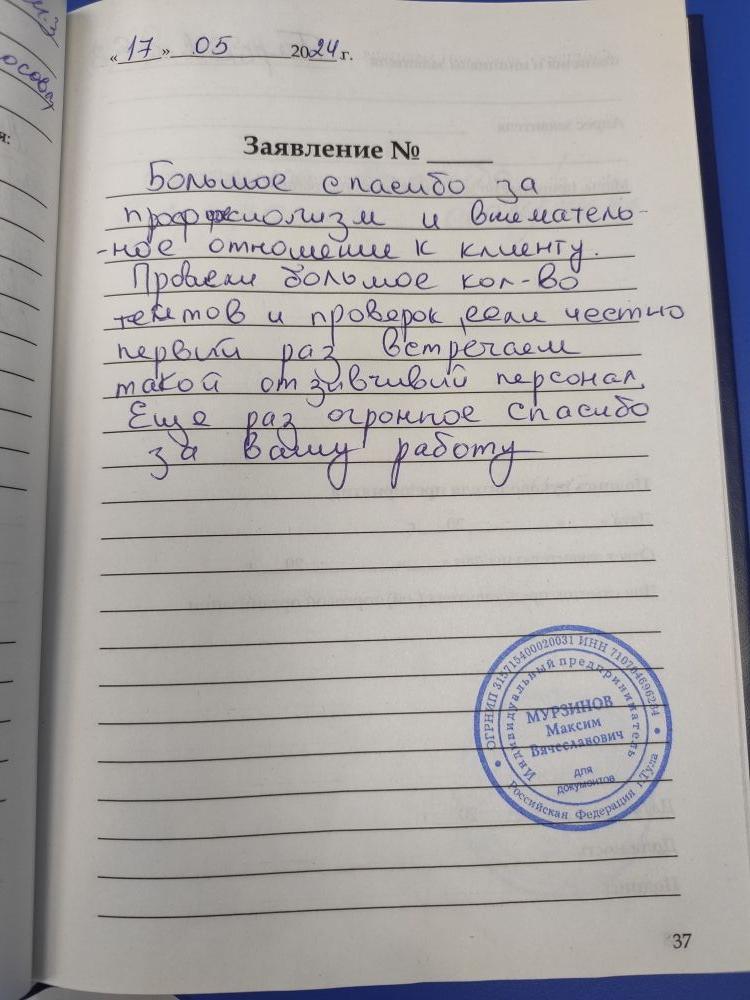 «17» 05 2024 г.
Заявление №
Большое спасибо за
профессиолизм и внематель-
-ное отношение к клиенту.
Провели большое кол-во
тестов и проверок, если честно
первый раз встречаем
такой отзывчивый персонал.
Еще раз огромное спасибо
за вашу работу
ОГРНИП 315715400020031 ИНН 710704696264
Индивидуальный предприниматель
МУРЗИНОВ
Максим
Вячеславович
для
документов
Российская Федерация г.Тула
37